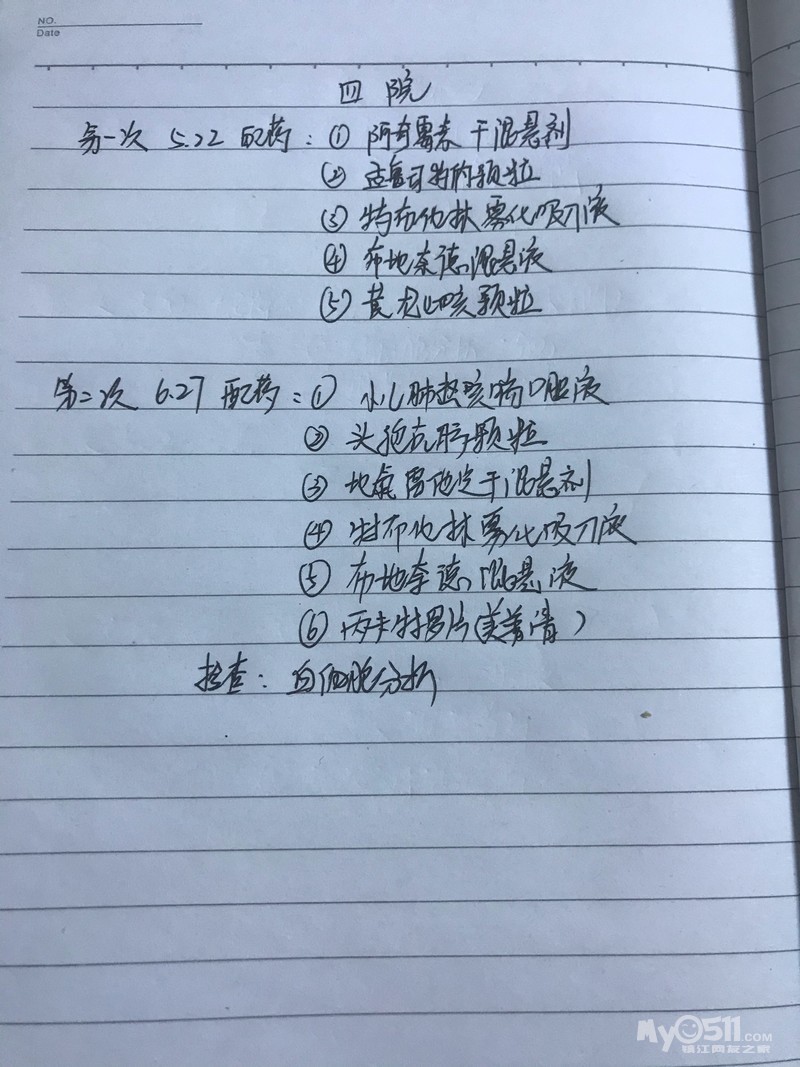 NO.
Date
四院
第一次 5.22 配药：① 阿奇霉素干混悬剂
② 孟鲁司特钠颗粒
③ 特布他林雾化吸入液
④ 布地奈德混悬液
⑤ 黄龙止咳颗粒
第二次 6.27 配药：① 小儿肺热咳喘口服液
② 头孢克肟颗粒
③ 地氯雷他定干混悬剂
④ 特布他林雾化吸入液
⑤ 布地奈德混悬液
⑥ 丙卡特罗片（美普清）
检查：血细胞分析
My0511.com
镇江网友之家